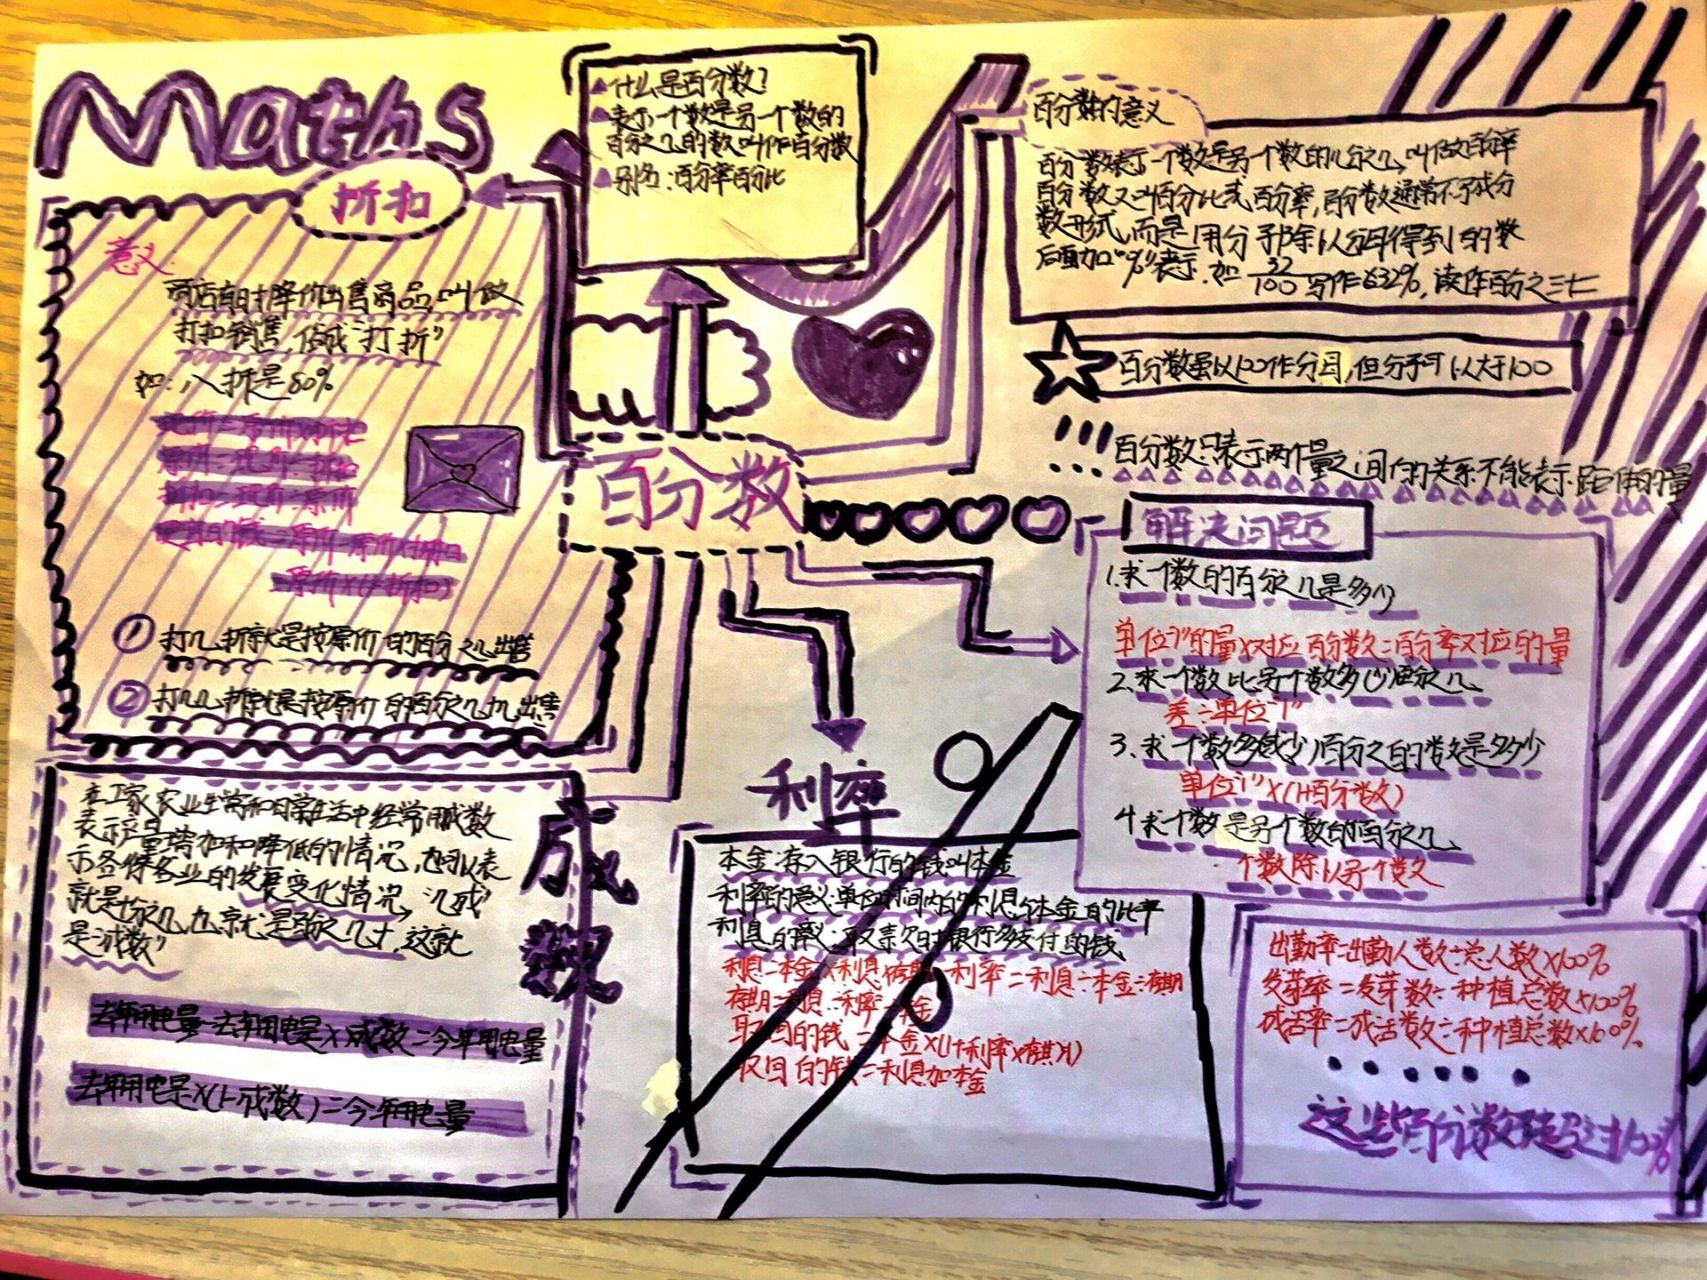 Maths
折扣
意义:
商店有时降价出售商品,叫做
打扣销售,俗成"打折"
如:八折是80%
现价=原价×折扣
原价=现价÷折扣
折扣=现价÷原价
便宜的钱=原价-原价×折扣
=原价×(1-折扣)
① 打几折就是按原价的百分之几出售
② 打几几折就是按原价的百分之几几出售
什么是百分数?
表示一个数是另一个数的
百分之几的数叫作百分数
别名:百分率百分比
百分数的意义
百分数表示一个数是另一个数的几分之几,叫做百分率
百分数又叫百分比或百分率,百分数通常不写成分
数形式,而是用分子除以分母得到的数
后面加"%"表示.如 32/100 写作632%,读作百分之三十二
百分数虽以100作分母,但分子可以大于100
!!! 百分数只表示两个量之间的关系不能表示具体的量
百分数
解决问题
1.求一个数的百分之几是多少
单位"1"的量×对应百分数=百分率对应的量
2.求一个数比另一个数多(少)百分之几
差÷单位"1"
3.求一个数多(或少)百分之的数是多少
单位"1"×(1+百分数)
4.求一个数是另一个数的百分之几
一个数除以另一个数
利率
本金:存入银行的钱叫本金
利率的意义:单位时间内的利息与本金的比率
利息的意义:取款时银行多支付的钱
利息=本金×利息×存期 利率=利息÷本金÷存期
存期=利息÷利率÷本金
取回的钱=本金×(1+利率×存期)
取回的钱=利息加本金
成数
在工农业生产和日常生活中经常用成数
表示产量增加和降低的情况,也可以表
示各行各业的发展变化情况,"几成"
就是十分之几,也就是百分之几十,这就
是"成数"
去年用电量-去年用电量×成数=今年用电量
去年用电量×(1-成数)=今年用电量
出勤率=出勤人数÷总人数×100%
发芽率=发芽数÷种植总数×100%
成活率=成活数÷种植总数×100%
这些百分数不超过100%